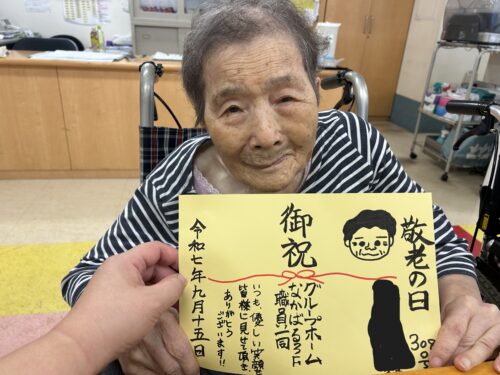 敬老の日
御祝
グループホーム
なかばる3F
職員一同
いつも、優しい笑顔を
皆様に見せて頂き
ありがとう
ございます!!
令和七年九月十五日